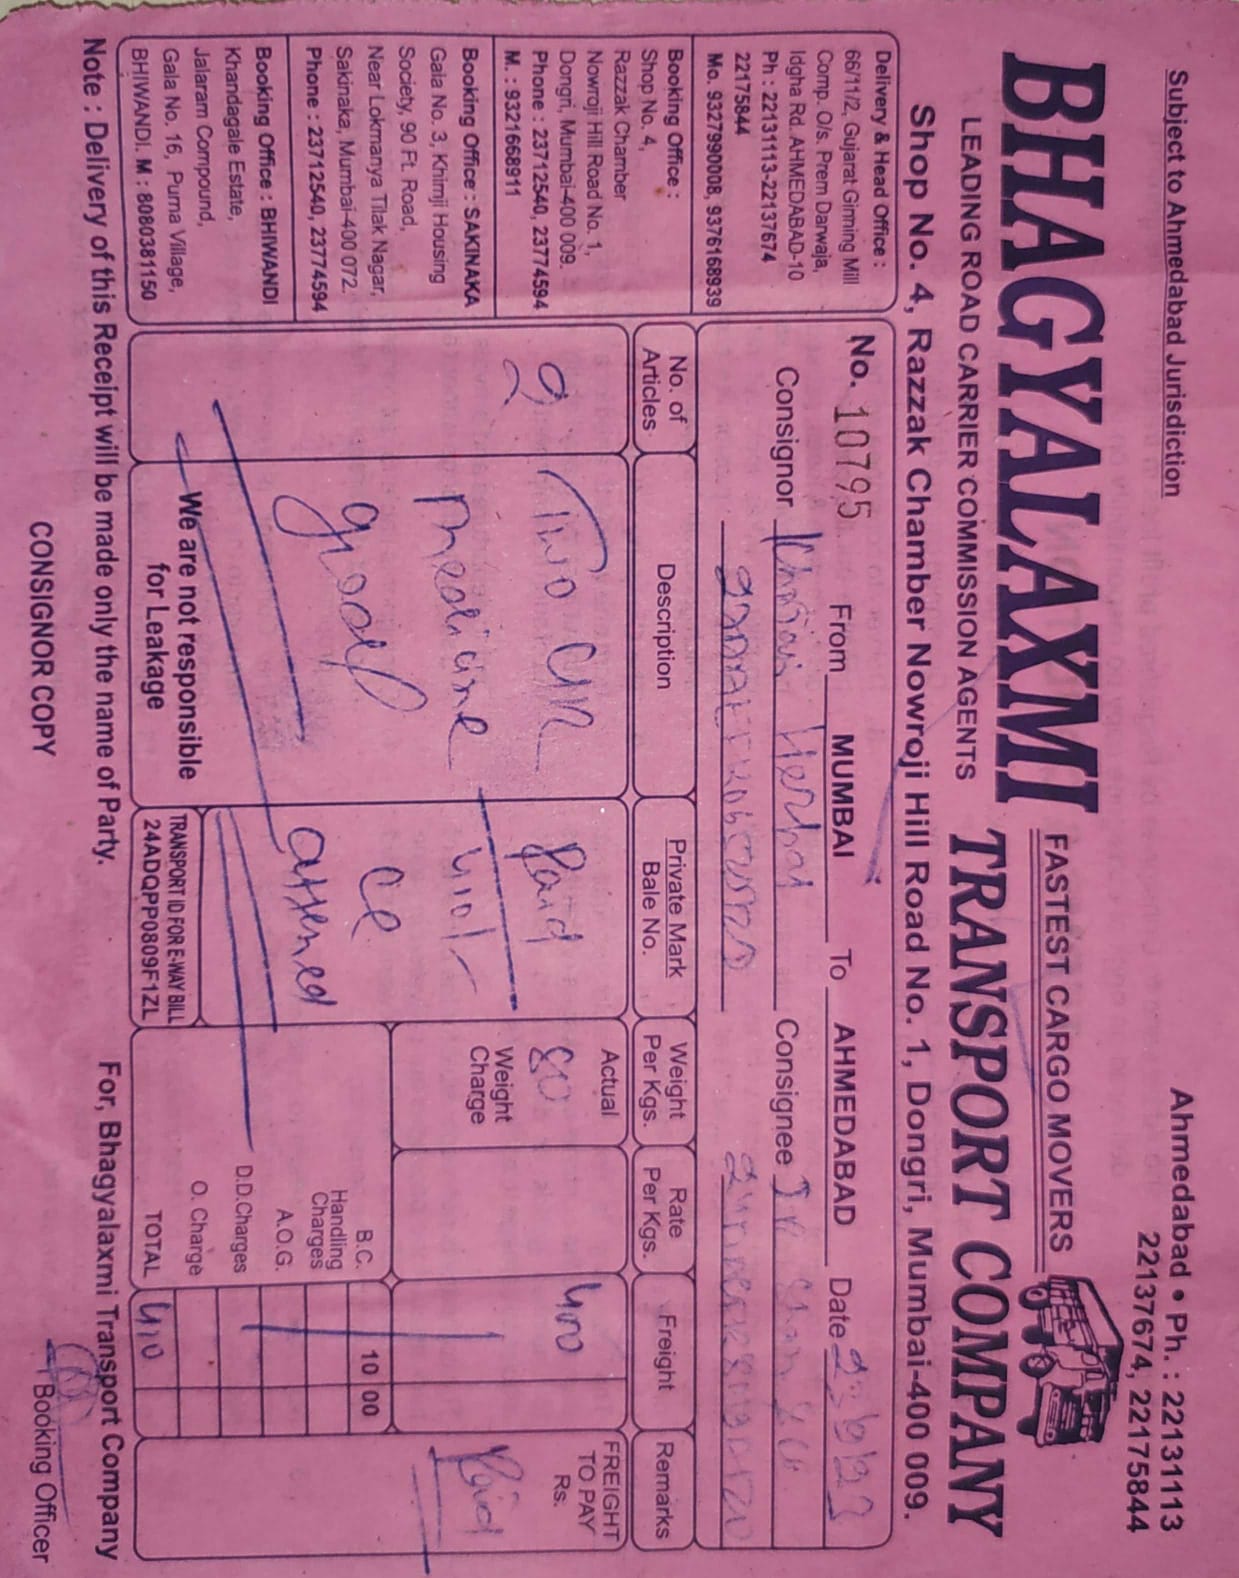 Subject to Ahmedabad Jurisdiction
Ahmedabad • Ph. : 22131113
22137674, 22175844
FASTEST CARGO MOVERS
BHAGYALAXMI TRANSPORT COMPANY
LEADING ROAD CARRIER COMMISSION AGENTS
Shop No. 4, Razzak Chamber Nowroji Hill Road No. 1, Dongri, Mumbai-400 009.
Delivery & Head Office :
66/11/2, Gujarat Ginning Mill
Comp. O/s. Prem Darwaja,
Idgha Rd. AHMEDABAD-10
Ph : 22131113-22137674
22175844
Mo. 9327990008, 9376168939
Booking Office :
Shop No. 4,
Razzak Chamber
Nowroji Hill Road No. 1,
Dongri, Mumbai-400 009.
Phone : 23712540, 23774594
M. : 9321668911
Booking Office : SAKINAKA
Gala No. 3, Khimji Housing
Society, 90 Ft. Road,
Near Lokmanya Tilak Nagar,
Sakinaka, Mumbai-400 072.
Phone : 23712540, 23774594
Booking Office : BHIWANDI
Khandagale Estate,
Jalaram Compound,
Gala No. 16, Purna Village,
BHIWANDI. M : 8080381150
No. 10795 From MUMBAI To AHMEDABAD Date
Consignor Consignee
No. of Articles
Description
Private Mark
Bale No.
Weight Per Kgs.
Rate Per Kgs.
Freight
Remarks
2
Two
medicine
good
Paid
410/-
CC
attened
Actual
80
Weight Charge
400
FREIGHT TO PAY Rs.
Paid
B.C. 10 00
Handling Charges
A.O.G.
D.D.Charges
O. Charge
TOTAL 410
We are not responsible
for Leakage
TRANSPORT ID FOR E-WAY BILL
24ADQPP0809F1ZL
Note : Delivery of this Receipt will be made only the name of Party.
For, Bhagyalaxmi Transport Company
CONSIGNOR COPY
Booking Officer